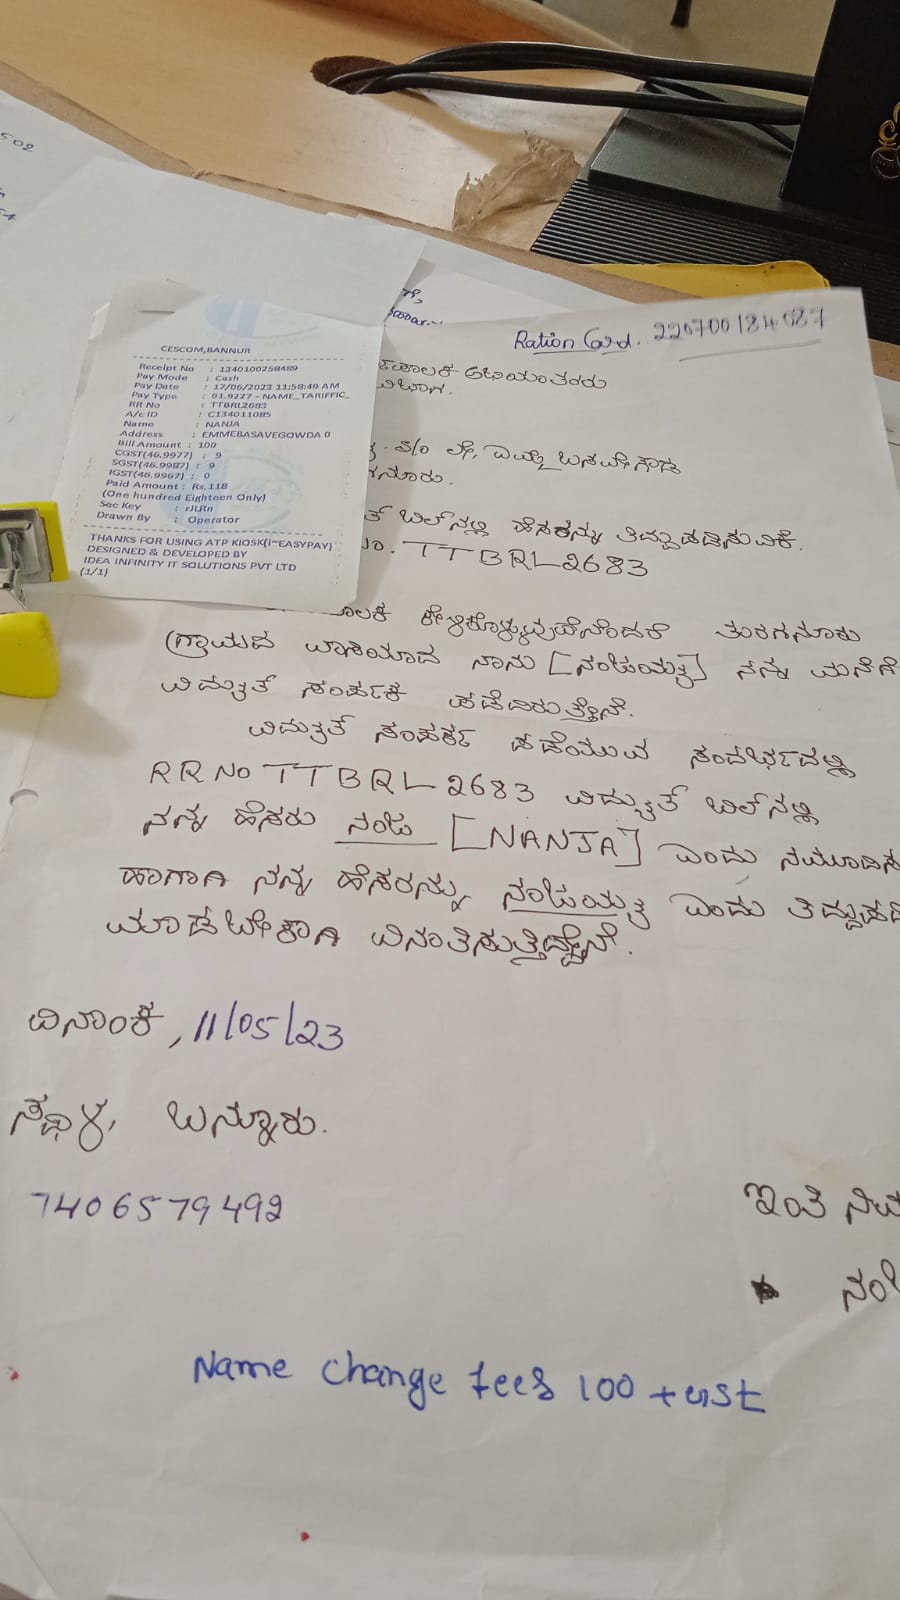 502
Ration Card. 220700184087
CESCOM,BANNUR
Receipt No : 1340100258489
Pay Mode : Cash
Pay Date : 17/06/2023 11:58:49 AM
Pay Type : 61.9227 - NAME_TARIFFIC_
RR No : TTBRL2683
A/c ID : C134011085
Name : NANJA
Address : EMMEBASAVEGOWDA 0
Bill Amount : 100
CGST(46.9977) : 9
SGST(46.9987) : 9
IGST(46.9967) : 0
Paid Amount : Rs.118
(One hundred Eighteen Only)
Sec Key : rJLRn
Drawn By : Operator
THANKS FOR USING ATP KIOSK(I-EASYPAY)
DESIGNED & DEVELOPED BY
IDEA INFINITY IT SOLUTIONS PVT LTD
(1/1)
ಪಾಲಕ ಅಭಿಯಂತರರು
ವಿಭಾಗ.
S/o ಲೇ, ಎಮ್ಮೆ ಬಸವೇಗೌಡ
ಗನೂರು.
ಬಿಲ್‌ನಲ್ಲಿ ಹೆಸರನ್ನು ತಿದ್ದುಪಡಿಸುವಿಕೆ.
No. TTBRL2683
ಕೇಳಿಕೊಳ್ಳುವುದೇನೆಂದರೆ ತುರಗನೂರು
ಗ್ರಾಮದ ವಾಸಿಯಾದ ನಾನು [ನಂಜಯ್ಯ] ನನ್ನ ಮನೆಗೆ
ವಿದ್ಯುತ್ ಸಂಪರ್ಕ ಪಡೆದಿರುತ್ತೇನೆ.
ವಿದ್ಯುತ್ ಸಂಪರ್ಕ ಪಡೆಯುವ ಸಂದರ್ಭದಲ್ಲಿ
RR No TTBRL2683 ವಿದ್ಯುತ್ ಬಿಲ್‌ನಲ್ಲಿ
ನನ್ನ ಹೆಸರು ನಂಜ [NANJA] ಎಂದು ನಮೂದಿಸ
ಹಾಗಾಗಿ ನನ್ನ ಹೆಸರನ್ನು ನಂಜಯ್ಯ ಎಂದು ತಿದ್ದುಪಡಿ
ಮಾಡಬೇಕಾಗಿ ವಿನಂತಿಸುತ್ತಿದ್ದೇನೆ.
ದಿನಾಂಕ, 11/05/23
ಸ್ಥಳ, ಬನ್ನೂರು.
7406579492
ಇಂತಿ ನಿಮ
ನಂಜ
Name change fees 100 + GST